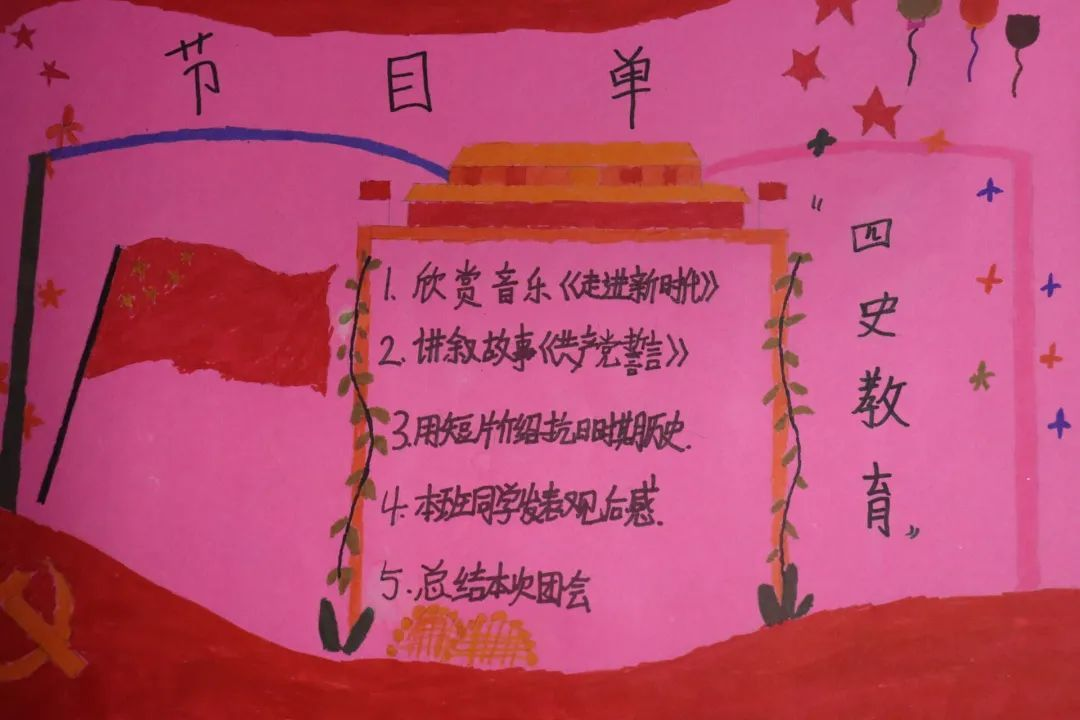 节目单
1. 欣赏音乐《走进新时代》
2. 讲叙故事《共产党誓言》
3. 用短片介绍抗日时期历史.
4. 本班同学发表观后感.
5. 总结本次团会
“四史教育”